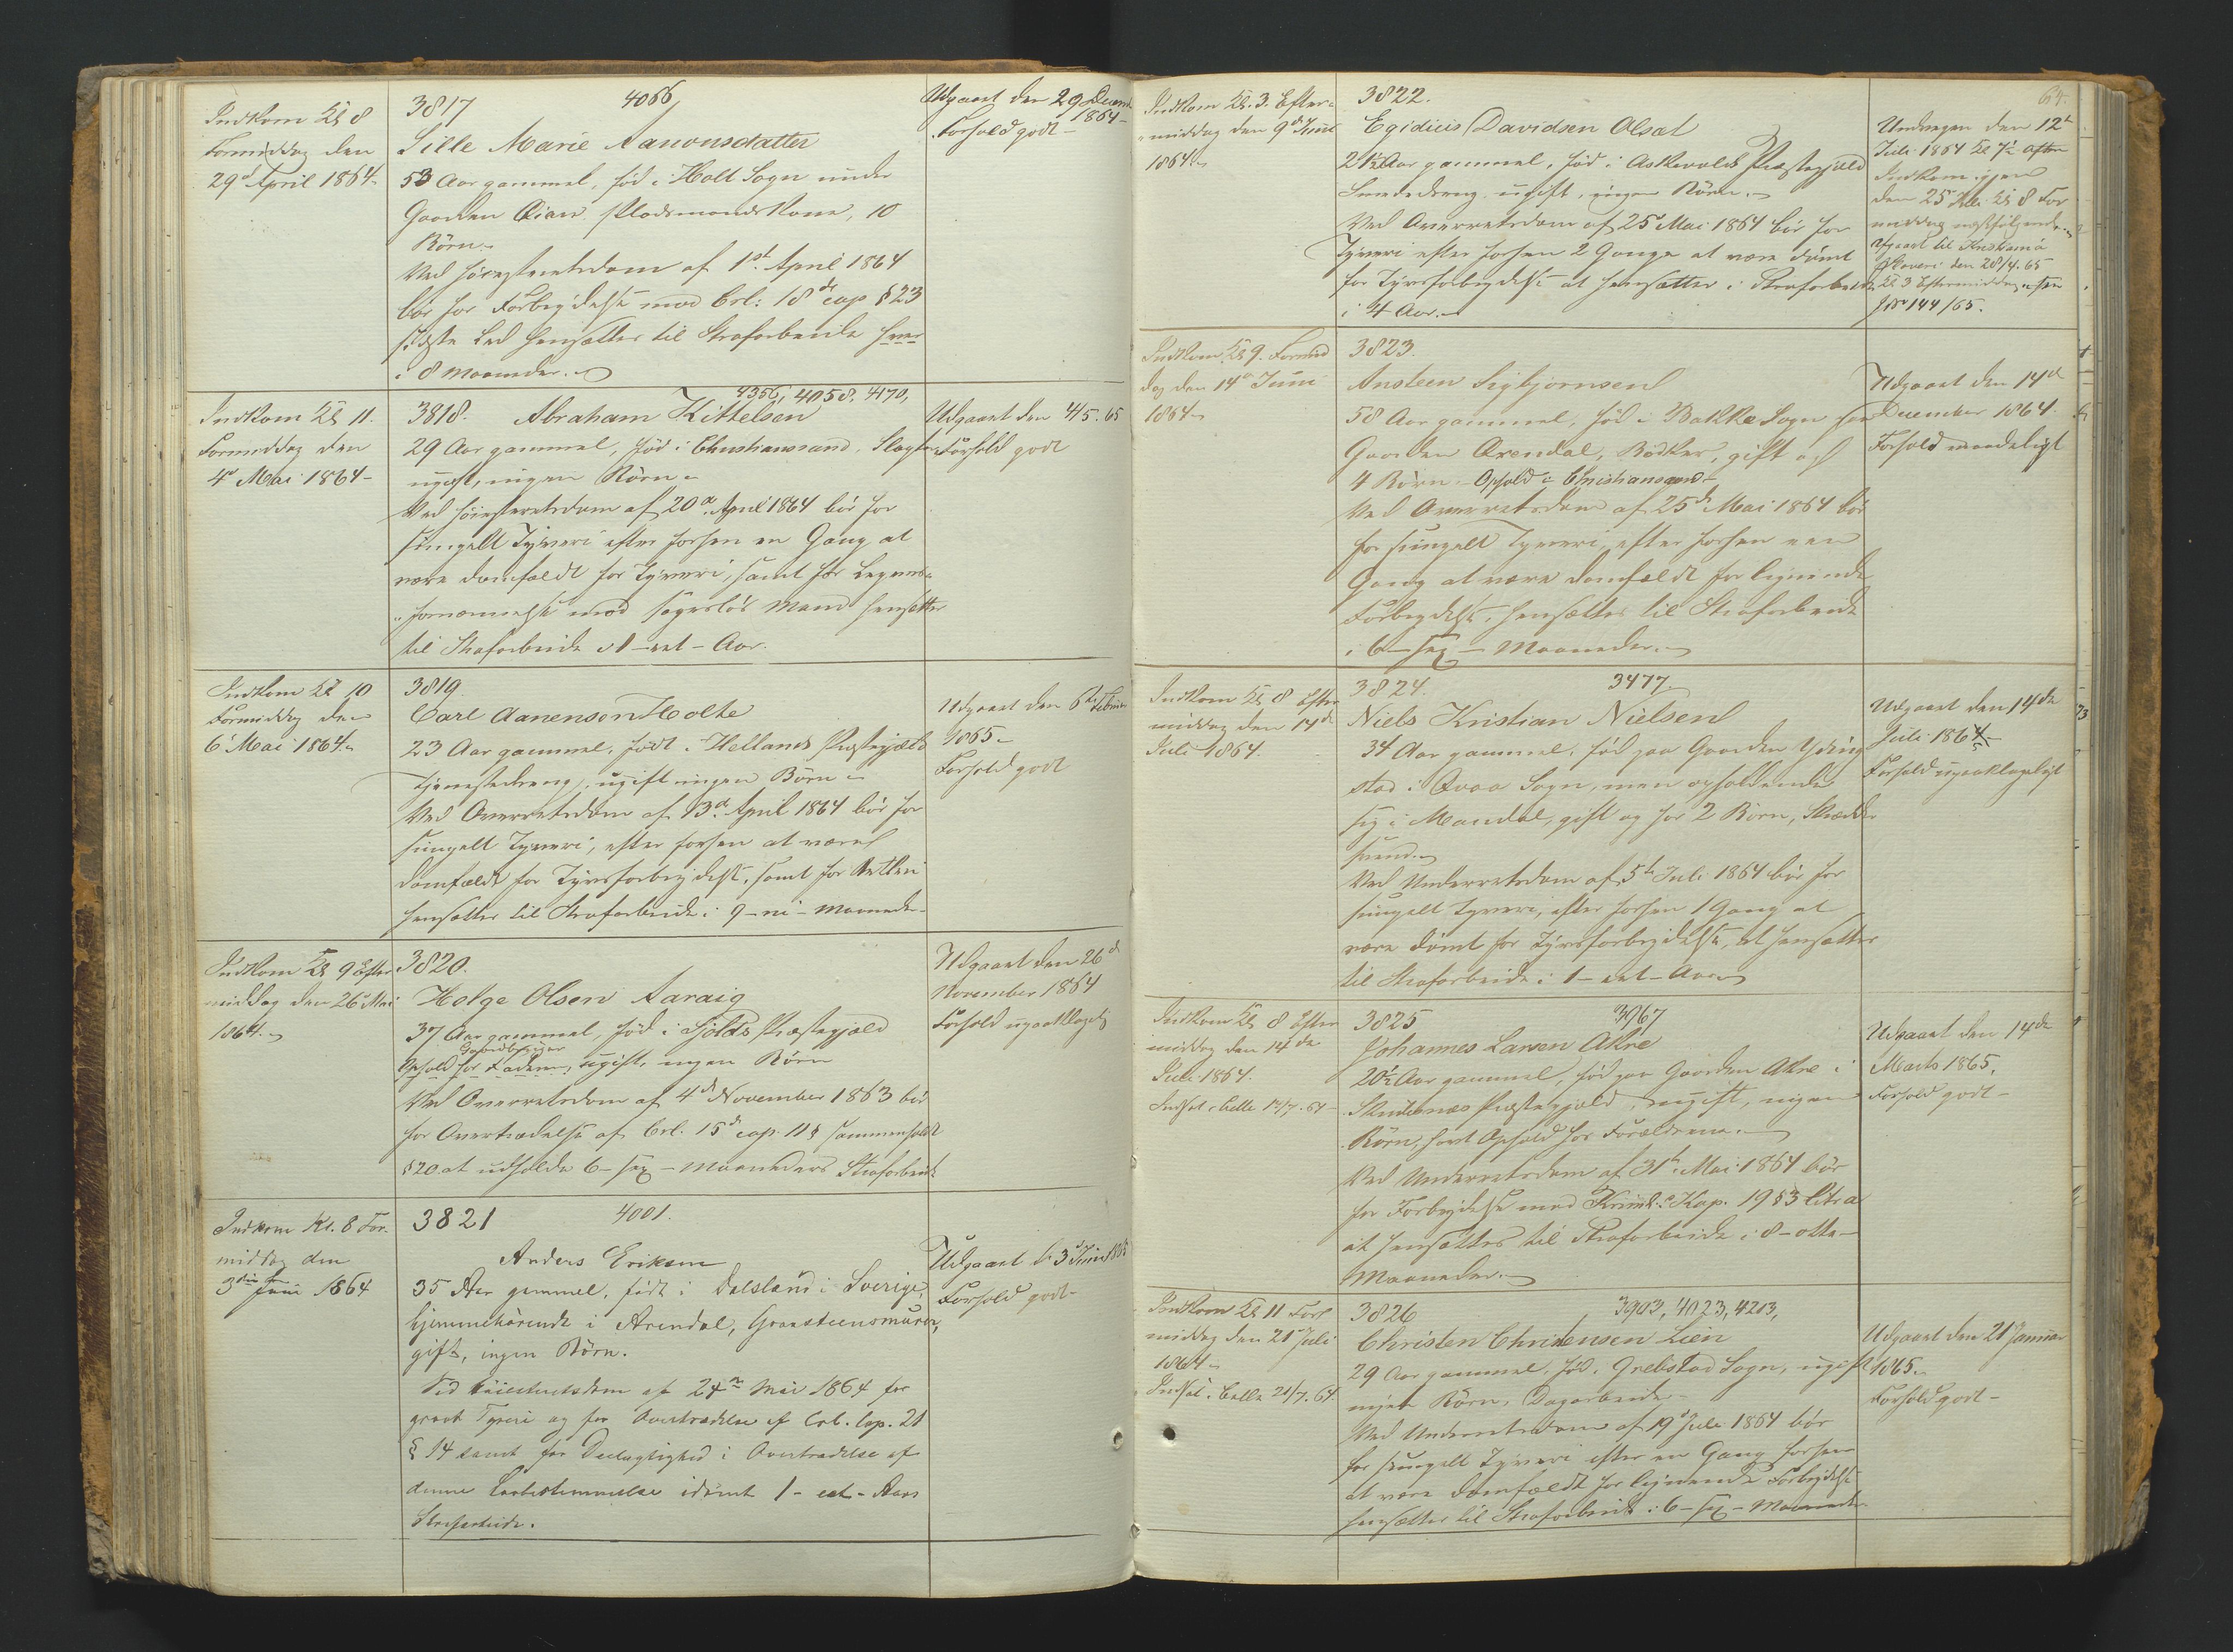 Indkom Kl 8
Formiddag den
29d April 1864.
3817 4066
Sille Marie Aanonsdatter
53 Aar gammel, fød i Holt Sogn under
Gaarden Eian, Pladsmandskone, 10
Børn.
Ved Høiesteretsdom af 1st April 1864
bør for Forbrydelse mod Crl: 18de cap §23
sidste Led hensættes til Strafarbeide
i 8 Maaneder.
Udgaaet den 29 Decemb
1864
Forhold godt
Indkom Kl 11.
Formiddag den
4de Mai 1864
4356, 4058, 4170,
3818. Abraham Kittelsen
29 Aar gammel, fød i Christianssand, Slagter
ugift, ingen Børn
Ved Høiesteretsdom af 20de April 1864 bør for
simpelt Tyveri efter forhen en Gang at
være domfældt for Tyveri, samt for Legems-
fornærmelse mod sagesløs Mand hensættes
til Strafarbeide i 1 - et - Aar.
Udgaaet den 4/5. 65
Forhold godt
Indkom Kl 10
Formiddag den
6 Mai 1864.
3819.
Carl Aanensen Holte
23 Aar gammel, født i Hellands Præstegjæld
Tjenestedreng, ugift ingen Børn
Ved Overretsdom af 13d April 1864 bør for
simpelt Tyveri, efter forhen at være
domfældt for Tyvsforbrydelse, samt for Betleri
hensættes til Strafarbeide i 9 - ni - Maaneder.
Udgaaet den 6te Februar
1865
Forhold godt
Indkom Kl 9 Efter
middag den 26 Mai
1864.
3820.
Helge Olsen Aaraig
37 Aar gammel, fød i Fjolds Præstegjæld
Gaardbruger
Ophold hos Faderen, ugift, ingen Børn
Ved Overretsdom af 4de November 1863 bør
for Overtrædelse af Crl. 15de cap. 11§ sammenholdt
§20 at udholde 6 - sex - Maaneders Strafarbeide
Udgaaet den 26d
November 1864
Forhold upaaklageligt
Indkom Kl. 8 For-
middag den
3die Juni 1864
3821 4001.
Anders Eriksen
35 Aar gammel, født i Dalsland i Sverige,
hjemmehørende i Arendal, Graasteensmurer,
gift, ingen Børn.
Ved Høiesteretsdom af 24de Mai 1864 for
grovt Tyveri og for Overtrædelse af Crl. Cap. 21
§ 14 samt for Deelagtighed i Overtrædelse af
denne Lovbestemmelse idømt 1 - eet - Aars
Strafarbeide.
Udgaaet d 3 Juni 1865
Forhold godt
64.
Indkom Kl. 3. Efter-
middag den 9de Juni
1864
3822.
Egidius Davidsen Olsæt
21½ Aar gammel, fød i Askevolds Præstegjæld
Smededreng ugift, ingen Børn.
Ved Overretsdom af 25 Mai 1864 bør for
Tyveri efter forhen 2 Gange at være dømt
for Tyvsforbrydelse at hensættes i Strafarbeide
i 4 Aar.
Undvegen den 12te
Juli 1864 Kl 7½ Aften
Indkom igjen
den 25 Juli Kl 8 For
middag næstfølgende
Afgaaet til Akershus
Slaveri den 28/4. 65
Kl 3 Eftermiddag
J No 144/65.
Indkom Kl 9. Formid
dag den 14de Juni
1864
3823.
Ansteen Sigbjørnsen
58 Aar gammel, fød i Bakke Sogn paa
Gaarden Øxendal, Bødker, gift og
4 Børn. Ophold i Christianssand
Ved Overretsdom af 25de Mai 1864 bør
for simpelt Tyveri efter forhen een
Gang at være domfældt for lignende
Forbrydelse, hensættes til Strafarbeide
i 6 - sex - Maaneder.
Udgaaet den 14d
December 1864.
Forhold maadeligt
Indkom Kl 8 Efter
middag den 14de
Juli 1864.
3824. 3477.
Niels Kristian Nielsen
34 Aar gammel, fød paa Gaarden
stad i Qvaa Sogn, men opholdende
sig i Mandal, gift og har 2 Børn, Skrædder
svend.
Ved Underretsdom af 5te Juli 1864 bør for
simpelt Tyveri, efter forhen 1 Gang at
være dømt for Tyvsforbrydelse, at hensættes
til Strafarbeide i 1 - eet - Aar
Udgaaet den 14de
Juli 186
Forhold upaaklageligt
Indkom Kl 8 Efter
middag den 14de
Juli 1864.
Indsat i Celle 14/7. 64
3825 3967
Johannes Larsen Akre
20½ Aar gammel, fød paa Gaarden Akre i
Skudenæs Præstegjæld, ugift, ingen
Børn, havt Ophold hos Forældrene.
Ved Underretsdom af 31te Mai 1864 bør
for Forbrydelse mod Kriml: Kap. 19 §3 Litr a
at hensættes til Strafarbeide i 8 - otte -
Maaneder.
Udgaaet den 14de
Marts 1865.
Forhold godt
Indkom Kl 11 For
middag den 21de Juli
1864
Indsat i Celle 21/7. 64
3826 3903, 4023, 4213,
Christen Christensen Lien
29 Aar gammel, fød i Grebstad Sogn, ugift
intet Børn, Dagarbeider
Ved Underretsdom af 19 Juli 1864 bør
for simpelt Tyveri efter en Gang forhen
at være domfældt for lignende Forbrydelse
hensættes til Strafarbeide i 6 - sex - Maaneder
Udgaaet den 21 Januar
1865.
Forhold godt